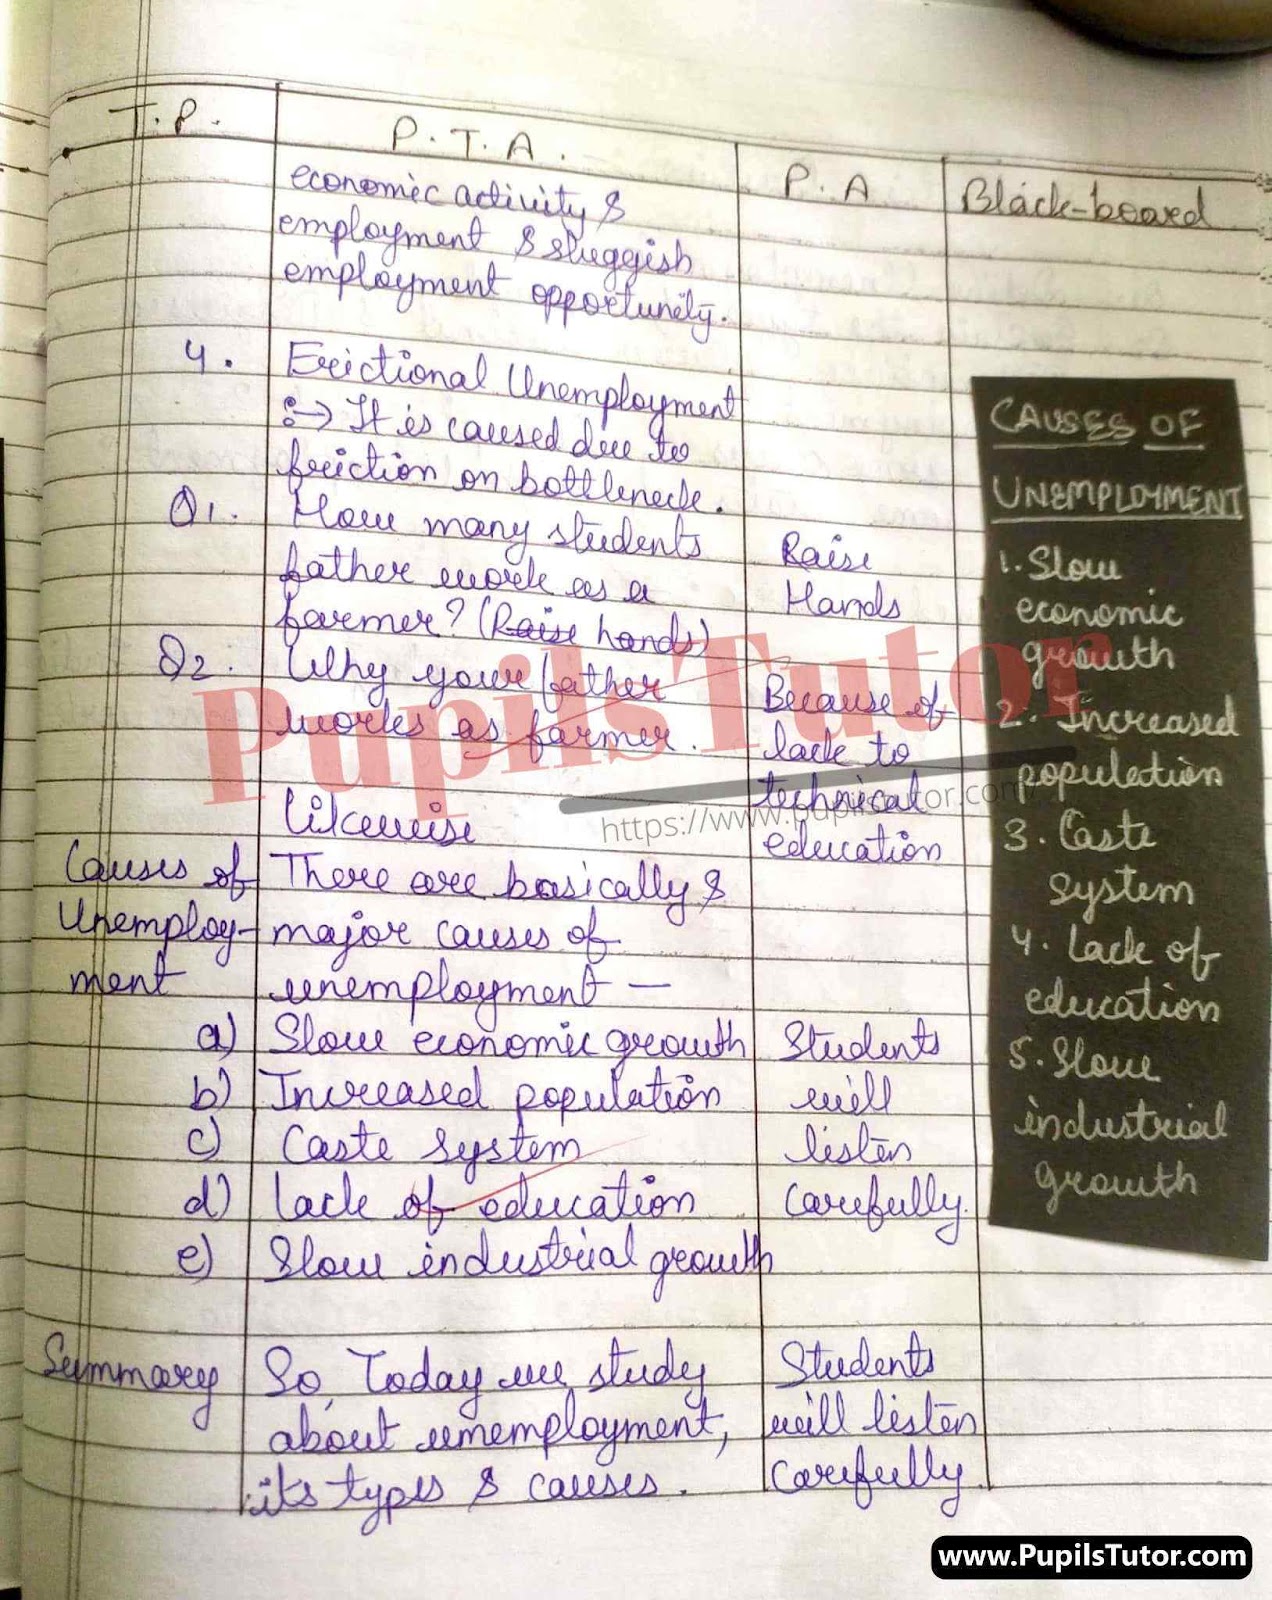 T.P.
P.T.A.
P.A
Black-board
economic activity &
employment & sluggish
employment opportunity.
4. Frictional Unemployment
:→ It is caused due to
friction on bottleneck.
Q1. How many students
father work as a
farmer? (Raise hands)
Raise
Hands
Q2. Why your father
works as farmer.
Because of
lack to
technical
education
likewise
Causes of
Unemploy-
ment
There are basically &
major causes of
unemployment —
a) Slow economic growth
b) Increased population
c) Caste system
d) lack of education
e) Slow industrial growth
Students
will
listen
Carefully.
Summary
So, Today we study
about unemployment,
its types & causes.
Students
will listen
Carefully.
CAUSES OF
UNEMPLOYMENT
1. Slow
economic
growth
2. Increased
population
3. Caste
system
4. Lack of
education
5. Slow
industrial
growth
PupilsTutor
https://www.pupilstutor.com
www.PupilsTutor.com